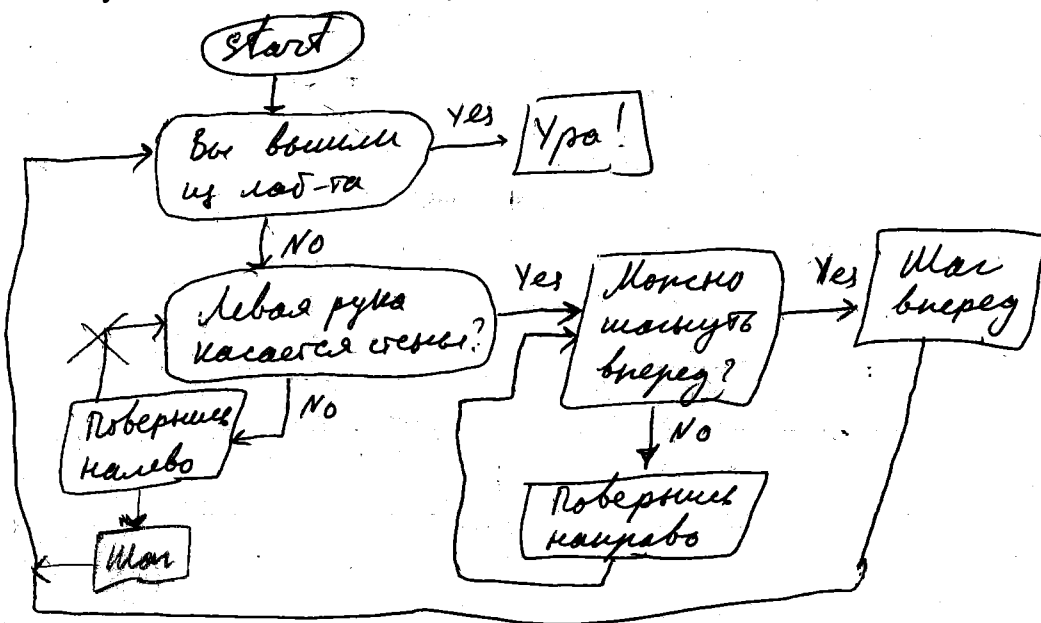 Start
Вы вышли
из лаб-та
Yes
Ура!
No
Левая рука
касается стены?
Yes
Можно
шагнуть
вперед?
Yes
Шаг
вперед
No
Повернись
налево
Шаг
No
Повернись
направо